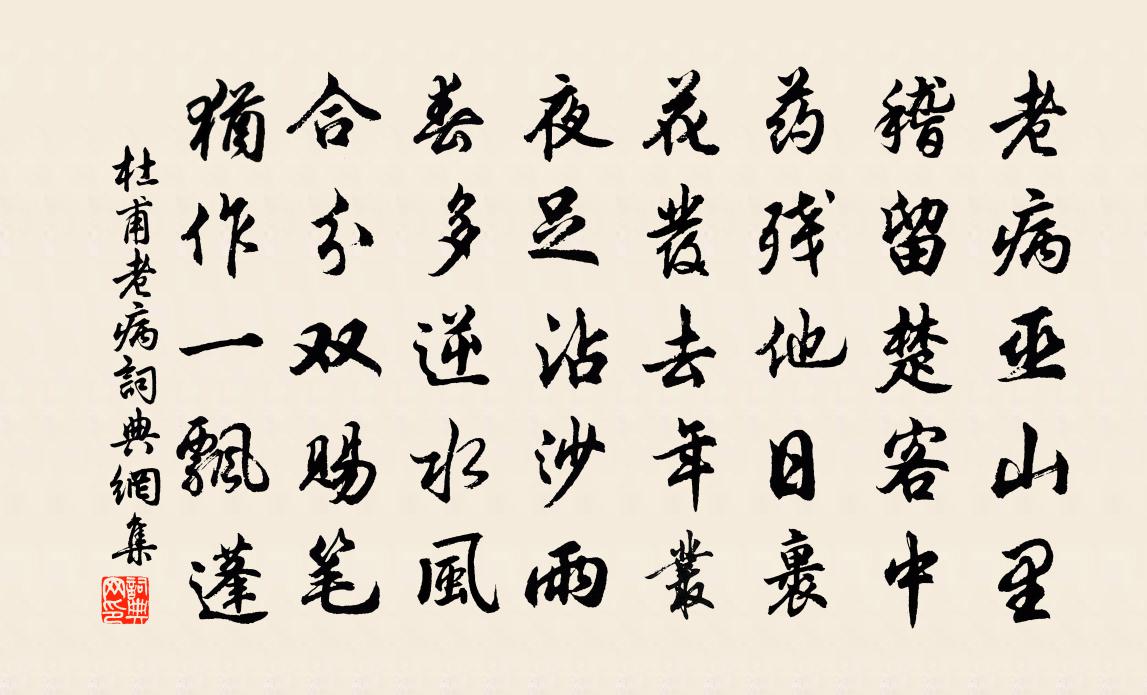 老病巫山里
稽留楚客中
药残他日裹
花發去年叢
夜足沾沙雨
春多逆水風
合分双赐笔
猶作一飄蓬
杜甫老病詞典網集
詞典網印